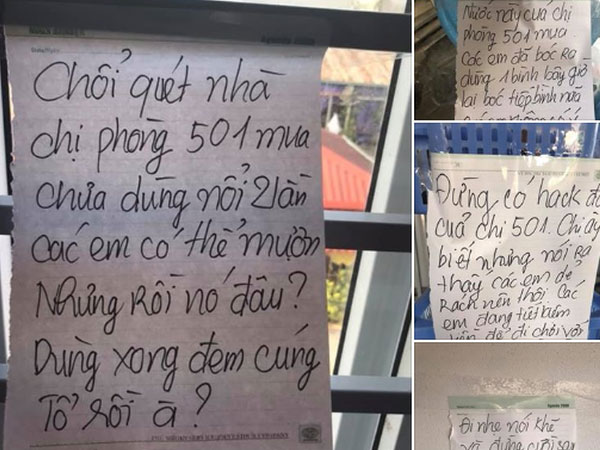 Chổi quét nhà
chị phòng 501 mua
chưa dùng nổi 2 lần
Các em có thể mượn
Nhưng rồi nó đâu?
Dùng xong đem cúng
Tổ rồi à?
Nước này của chị
phòng 501 mua.
Các em đã bóc ra
dùng 1 bình bây giờ
lại bóc tiếp bình nữa
Đừng có hack đồ
của chị 501. Chị ấy
biết nhưng nói ra
thấy các em dẻ
Rách nên thôi. Các
em đang tiết kiệm
để đi chơi với
Đi nhẹ nói khẽ
và đừng cười